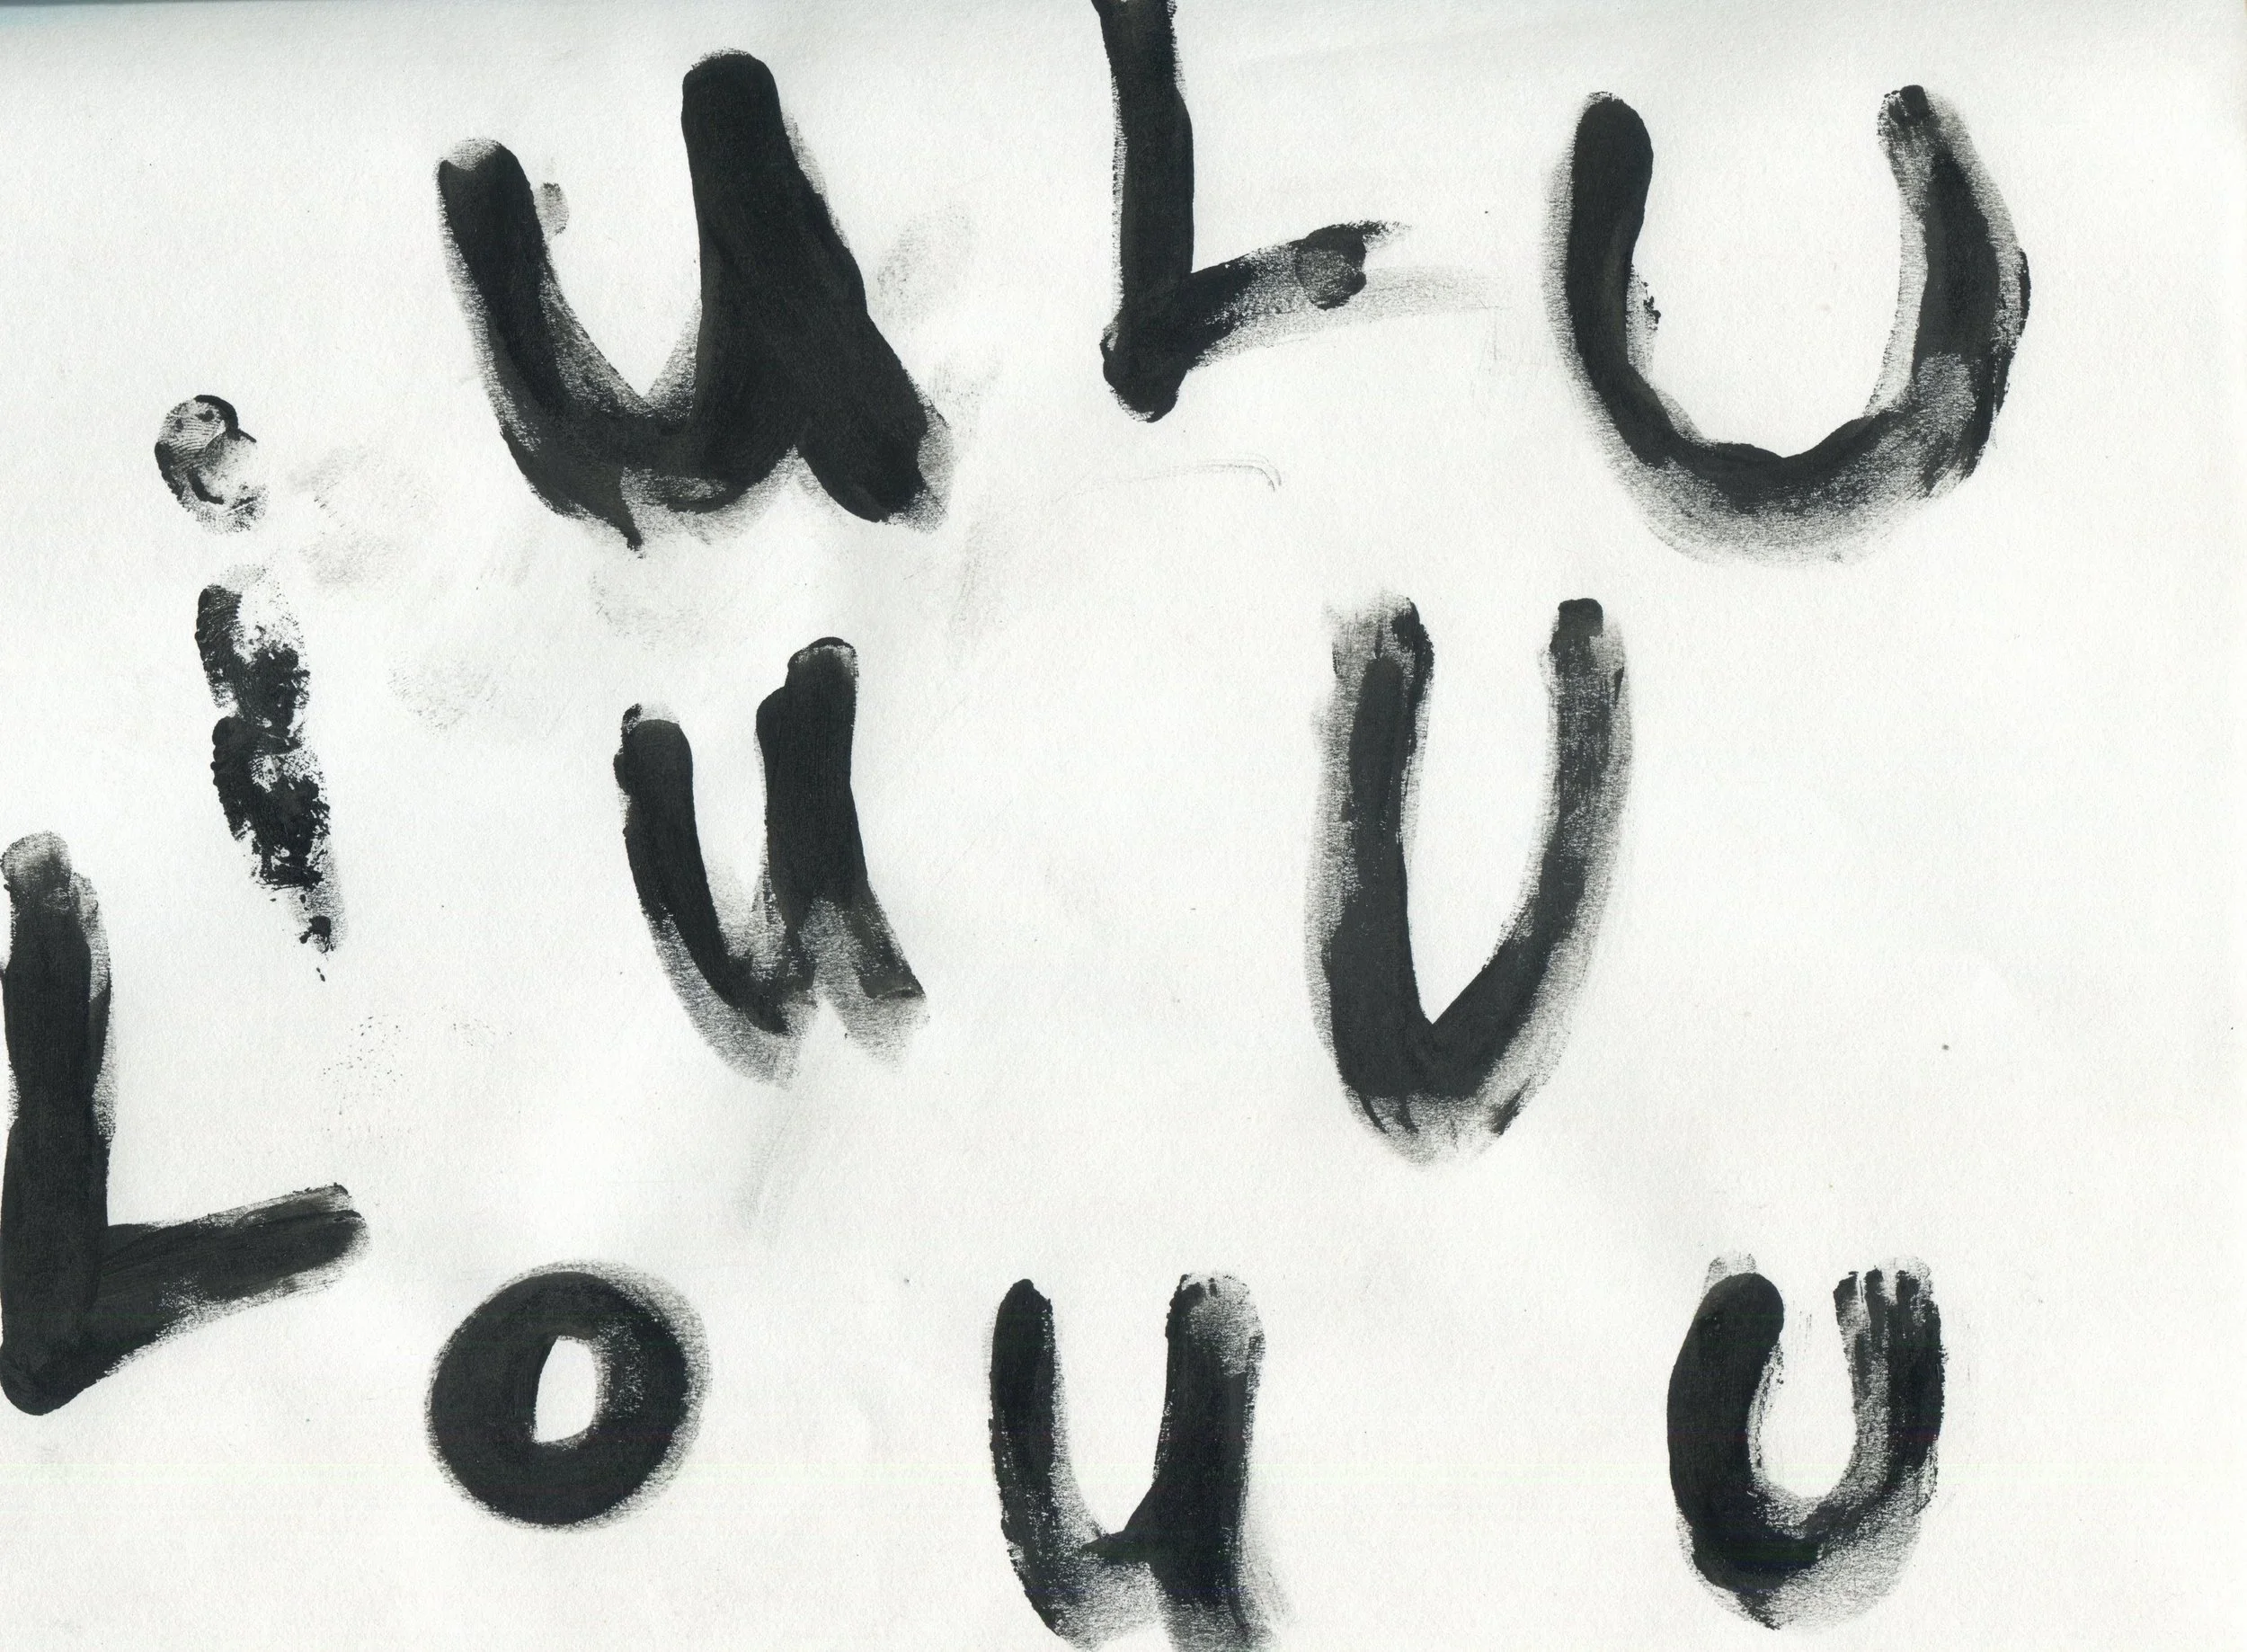 u L U
i u U
L o u u